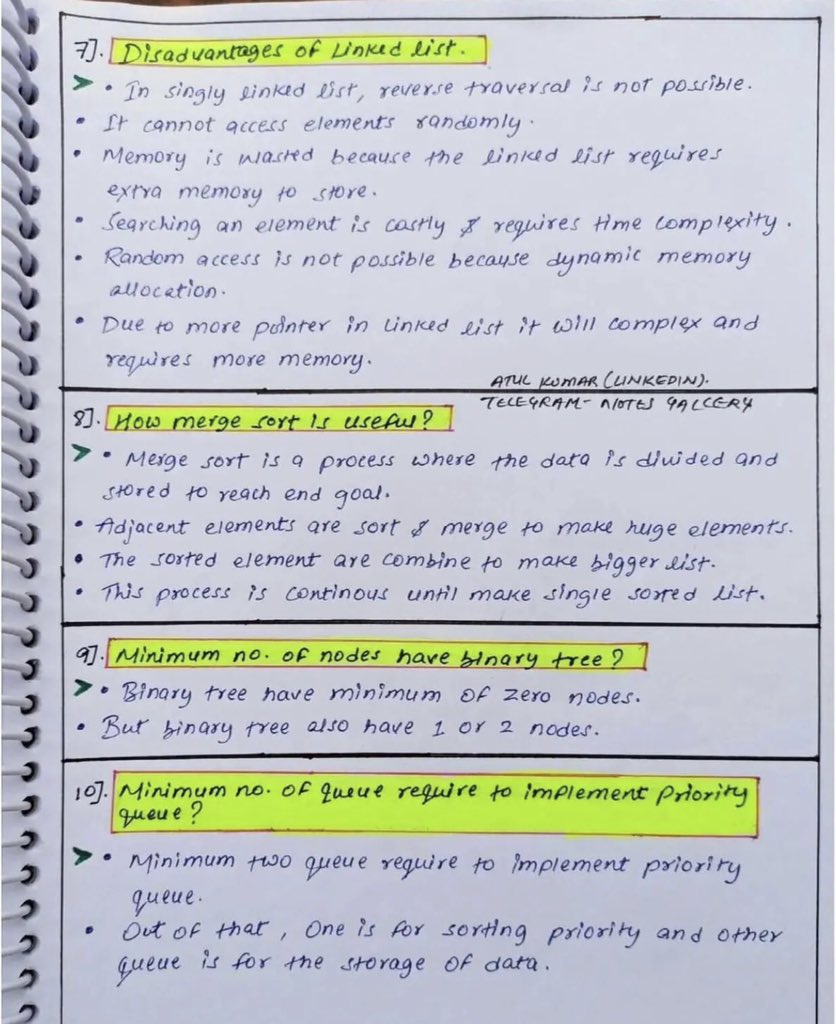 7]. Disadvantages of Linked list.
➤ • In singly linked list, reverse traversal is not possible.
• It cannot access elements randomly.
• Memory is wasted because the linked list requires
extra memory to store.
• Searching an element is costly & requires time complexity.
• Random access is not possible because dynamic memory
allocation.
• Due to more pointer in linked list it will complex and
requires more memory.
ATUL KUMAR (LINKEDIN).
TELEGRAM - NOTES GALLERY
8]. How merge sort is useful?
➤ • Merge sort is a process where the data is divided and
stored to reach end goal.
• Adjacent elements are sort & merge to make huge elements.
• The sorted element are combine to make bigger list.
• This process is continous until make single sorted list.
9]. Minimum no. of nodes have binary tree?
➤ • Binary tree have minimum of zero nodes.
• But binary tree also have 1 or 2 nodes.
10]. Minimum no. of queue require to implement Priority
queue?
➤ • Minimum two queue require to implement priority
queue.
• Out of that, One is for sorting priority and other
queue is for the storage of data.